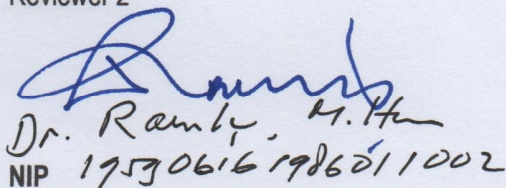 Reviewer 2
Dr. Ramly, M.Hum
NIP 19530616 198601 1 002